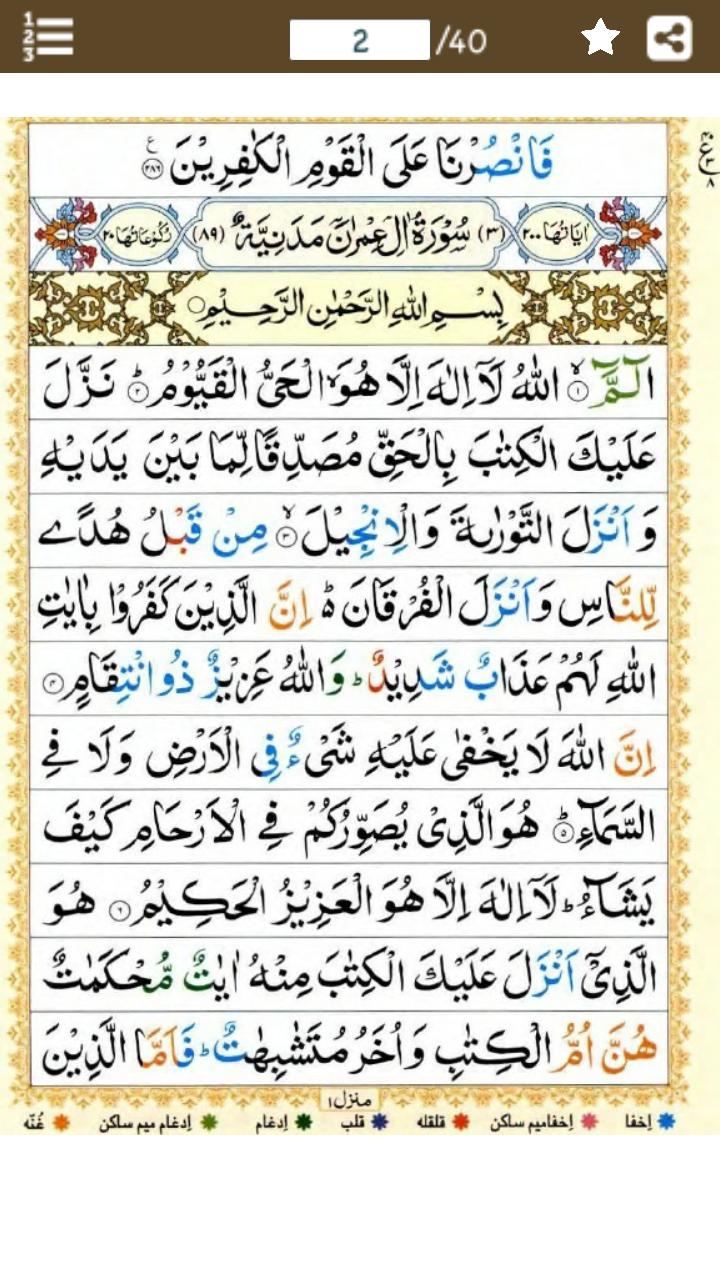 2 /40
فَانْصُرْنَا عَلَى الْقَوْمِ الْكٰفِرِيْنَ ۝٢٨٦ ع
اٰيَاتُهَا ٢٠٠ (٣) سُوْرَةُ اٰلِ عِمْرٰنَ مَدَنِيَّةٌ (٨٩) رُكُوْعَاتُهَا ٢٠
بِسْمِ اللّٰهِ الرَّحْمٰنِ الرَّحِيْمِ ۝
الٓمّٓ ۝١ۙ اللّٰهُ لَاۤ اِلٰهَ اِلَّا هُوَ ۙ الْحَیُّ الْقَيُّوْمُ ۝٢ؕ نَزَّلَ
عَلَيْكَ الْكِتٰبَ بِالْحَقِّ مُصَدِّقًا لِّمَا بَيْنَ يَدَيْهِ
وَ اَنْزَلَ التَّوْرٰىةَ وَالْاِنْجِيْلَ ۝٣ۙ مِنْ قَبْلُ هُدًى
لِّلنَّاسِ وَ اَنْزَلَ الْفُرْقَانَ ؕ۬ اِنَّ الَّذِيْنَ كَفَرُوْا بِاٰيٰتِ
اللّٰهِ لَهُمْ عَذَابٌ شَدِيْدٌ ؕ وَ اللّٰهُ عَزِيْزٌ ذُو انْتِقَامٍ ۝٤
اِنَّ اللّٰهَ لَا يَخْفٰى عَلَيْهِ شَیْءٌ فِی الْاَرْضِ وَلَا فِی
السَّمَآءِ ۝٥ؕ هُوَ الَّذِیْ يُصَوِّرُكُمْ فِی الْاَرْحَامِ كَيْفَ
يَشَآءُ ؕ لَاۤ اِلٰهَ اِلَّا هُوَ الْعَزِيْزُ الْحَكِيْمُ ۝٦ هُوَ
الَّذِیْۤ اَنْزَلَ عَلَيْكَ الْكِتٰبَ مِنْهُ اٰيٰتٌ مُّحْكَمٰتٌ
هُنَّ اُمُّ الْكِتٰبِ وَ اُخَرُ مُتَشٰبِهٰتٌ ؕ فَاَمَّا الَّذِيْنَ
منزل ١
اِخفا اِخفامیم ساکن قلقله قلب اِدغام اِدغام میم ساکن غُنّه